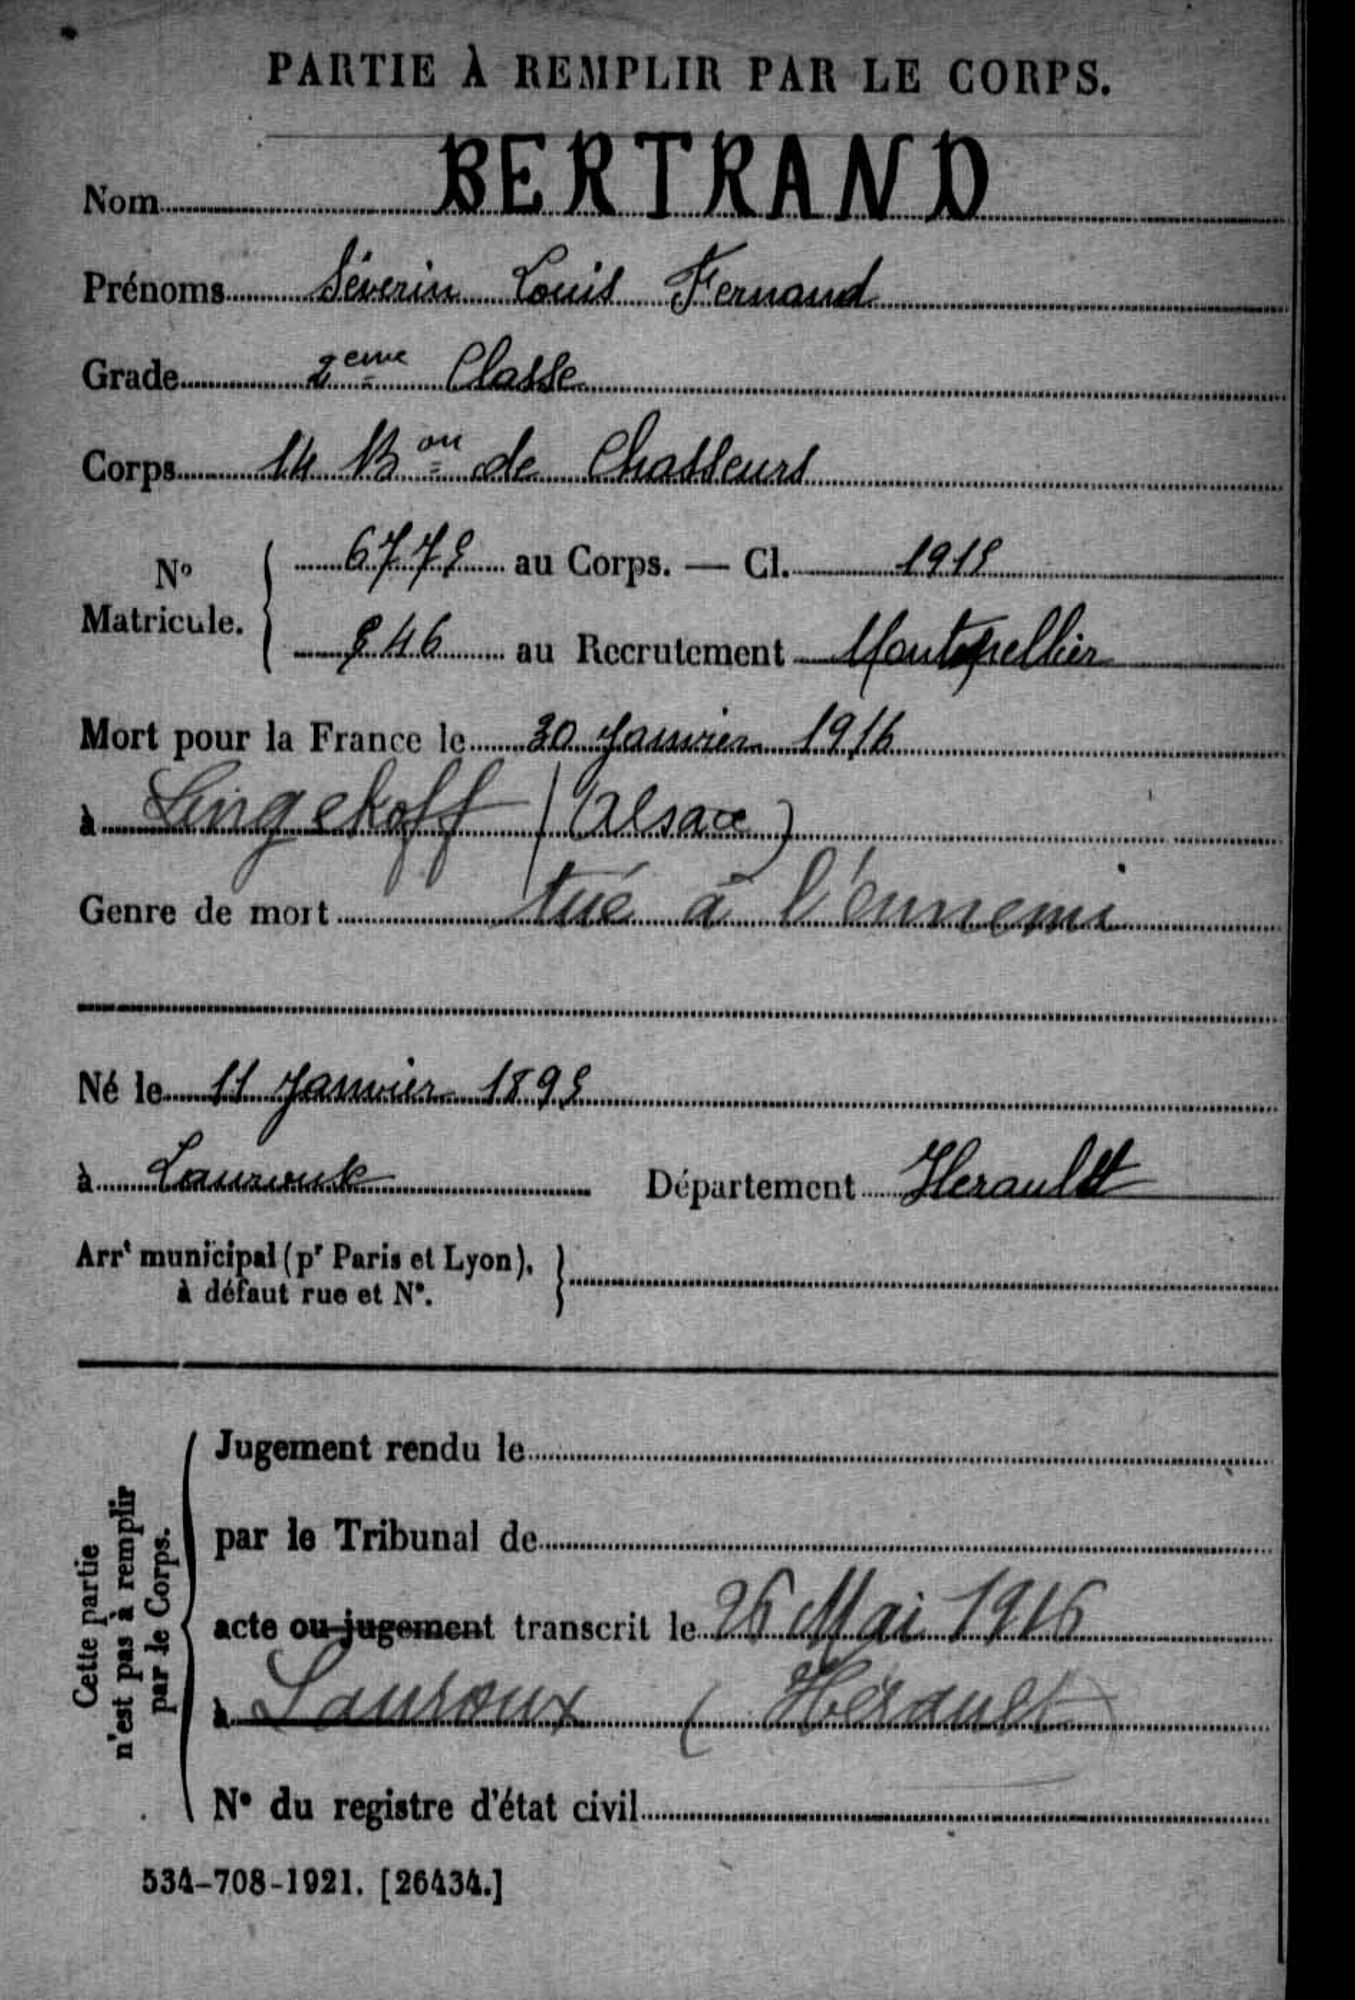 PARTIE À REMPLIR PAR LE CORPS.
Nom BERTRAND
Prénoms Séverin Louis Fernand
Grade 2eme Classe
Corps 14 Bon de Chasseurs
No Matricule. { 6775 au Corps. — Cl. 1915
546 au Recrutement Montpellier
Mort pour la France le 30 Janvier 1916
à Lingekoff (Alsace)
Genre de mort tué à l'ennemi
Né le 11 Janvier 1895
à Lauroux Département Herault
Arrt municipal (pr Paris et Lyon),
à défaut rue et No.
Cette partie
n'est pas à remplir
par le Corps.
Jugement rendu le
par le Tribunal de
acte ou jugement transcrit le 26 Mai 1916
à Lauroux (Hérault)
No du registre d'état civil
534-708-1921. [26434.]